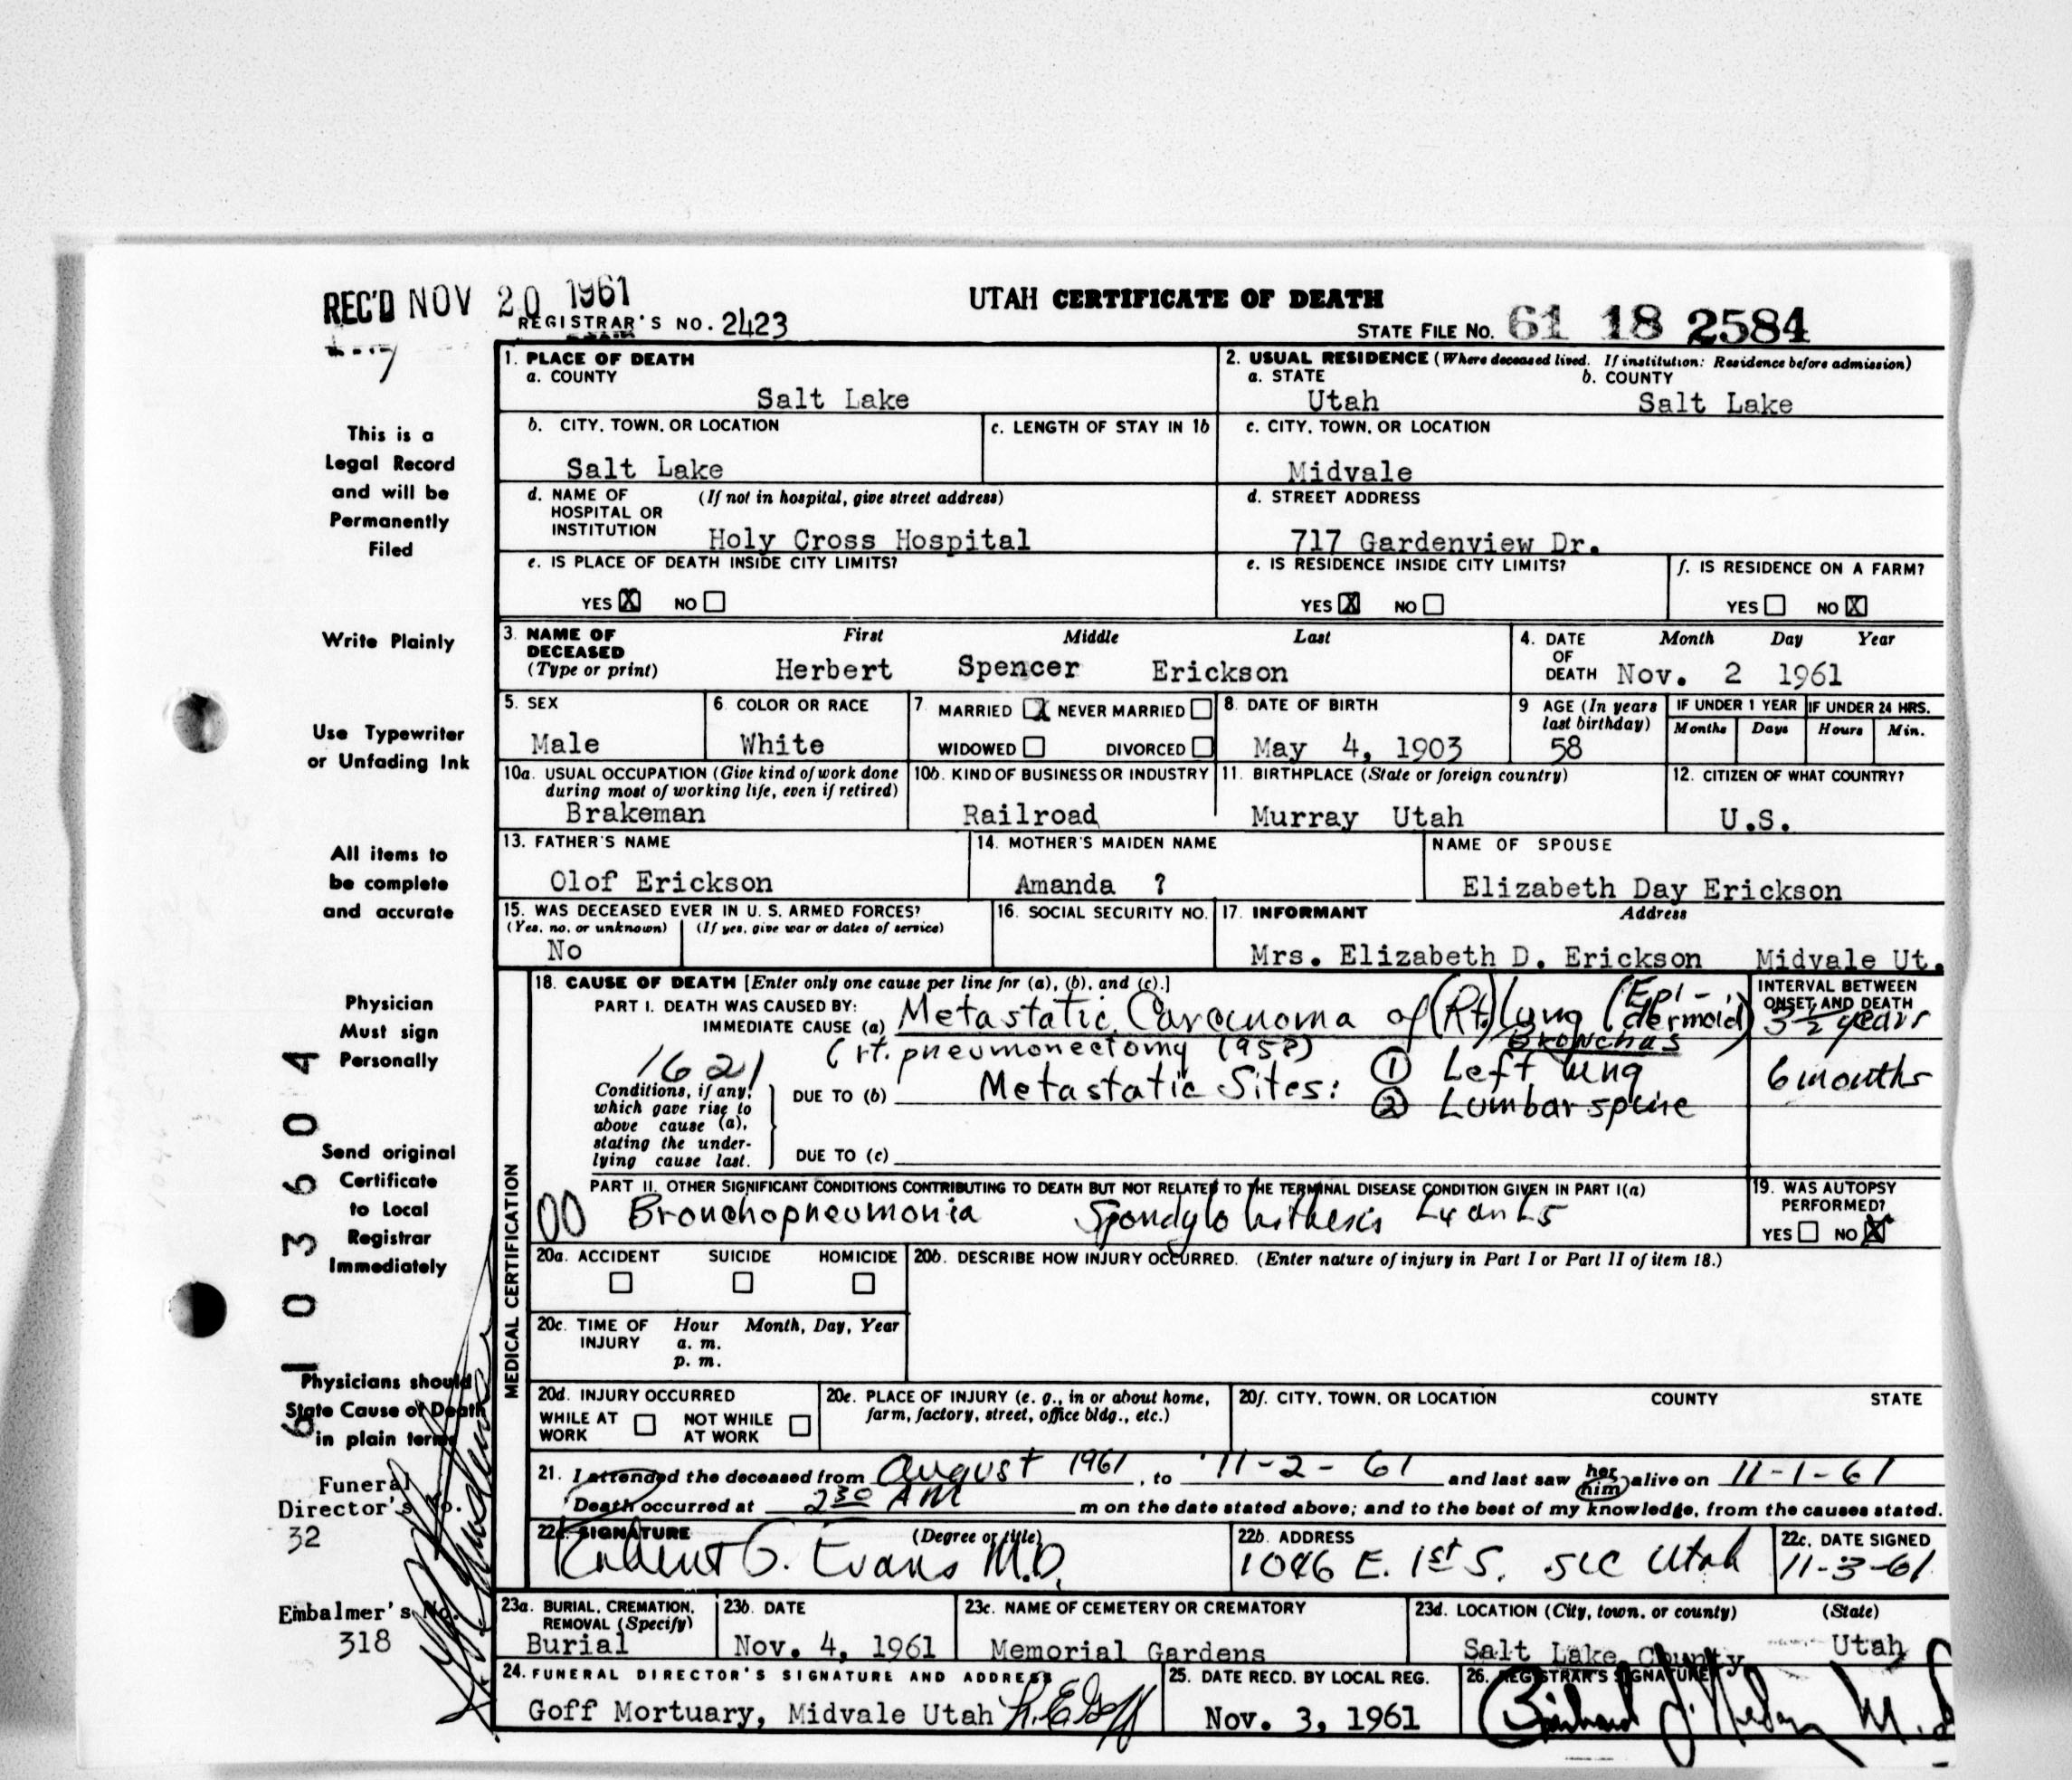 REC'D NOV 20 1961
REGISTRAR'S NO. 2423
UTAH CERTIFICATE OF DEATH
STATE FILE No. 61 18 2584
This is a
Legal Record
and will be
Permanently
Filed
Write Plainly
Use Typewriter
or Unfading Ink
All items to
be complete
and accurate
Physician
Must sign
Personally
Send original
Certificate
to Local
Registrar
Immediately
Physicians should
State Cause of Death
in plain terms
Funeral
Director's No.
32
Embalmer's No.
318
61 03604
1. PLACE OF DEATH
a. COUNTY
Salt Lake
2. USUAL RESIDENCE (Where deceased lived. If institution: Residence before admission)
a. STATE b. COUNTY
Utah Salt Lake
b. CITY, TOWN, OR LOCATION
Salt Lake
c. LENGTH OF STAY IN 1b
c. CITY, TOWN, OR LOCATION
Midvale
d. NAME OF (If not in hospital, give street address)
HOSPITAL OR
INSTITUTION Holy Cross Hospital
d. STREET ADDRESS
717 Gardenview Dr.
e. IS PLACE OF DEATH INSIDE CITY LIMITS?
YES X NO
e. IS RESIDENCE INSIDE CITY LIMITS?
YES X NO
f. IS RESIDENCE ON A FARM?
YES NO X
3. NAME OF First Middle Last
DECEASED
(Type or print) Herbert Spencer Erickson
4. DATE Month Day Year
OF
DEATH Nov. 2 1961
5. SEX
Male
6. COLOR OR RACE
White
7. MARRIED X NEVER MARRIED
WIDOWED DIVORCED
8. DATE OF BIRTH
May 4, 1903
9 AGE (In years
last birthday)
58
IF UNDER 1 YEAR IF UNDER 24 HRS.
Months Days Hours Min.
10a. USUAL OCCUPATION (Give kind of work done
during most of working life, even if retired)
Brakeman
10b. KIND OF BUSINESS OR INDUSTRY
Railroad
11. BIRTHPLACE (State or foreign country)
Murray Utah
12. CITIZEN OF WHAT COUNTRY?
U.S.
13. FATHER'S NAME
Olof Erickson
14. MOTHER'S MAIDEN NAME
Amanda ?
NAME OF SPOUSE
Elizabeth Day Erickson
15. WAS DECEASED EVER IN U. S. ARMED FORCES?
(Yes, no, or unknown) (If yes, give war or dates of service)
No
16. SOCIAL SECURITY NO.
17. INFORMANT Address
Mrs. Elizabeth D. Erickson Midvale Ut.
MEDICAL CERTIFICATION
18. CAUSE OF DEATH [Enter only one cause per line for (a), (b), and (c).]
PART I. DEATH WAS CAUSED BY:
IMMEDIATE CAUSE (a) Metastatic Carcinoma of (Rt.) lung (Epi-dermoid)
Bronchas
(rt. pneumonectomy 1958)
1621
INTERVAL BETWEEN
ONSET AND DEATH
3½ years
Conditions, if any,
which gave rise to
above cause (a),
stating the under-
lying cause last.
DUE TO (b) Metastatic Sites: ① Left lung
② Lumbar spine
6 months
DUE TO (c)
PART II. OTHER SIGNIFICANT CONDITIONS CONTRIBUTING TO DEATH BUT NOT RELATED TO THE TERMINAL DISEASE CONDITION GIVEN IN PART I(a)
00 Bronchopneumonia Spondylolisthesis L4 on L5
19. WAS AUTOPSY
PERFORMED?
YES NO X
20a. ACCIDENT SUICIDE HOMICIDE
20b. DESCRIBE HOW INJURY OCCURRED. (Enter nature of injury in Part I or Part II of item 18.)
20c. TIME OF Hour Month, Day, Year
INJURY a. m.
p. m.
20d. INJURY OCCURRED
WHILE AT WORK NOT WHILE AT WORK
20e. PLACE OF INJURY (e. g., in or about home,
farm, factory, street, office bldg., etc.)
20f. CITY, TOWN, OR LOCATION COUNTY STATE
21. I attended the deceased from August 1961, to 11-2-61 and last saw her him alive on 11-1-61
Death occurred at 2 30 AM m on the date stated above; and to the best of my knowledge, from the causes stated.
22a. SIGNATURE (Degree or title)
Evans M.D.
22b. ADDRESS
1046 E. 1st S. SLC Utah
22c. DATE SIGNED
11-3-61
23a. BURIAL, CREMATION,
REMOVAL (Specify)
Burial
23b. DATE
Nov. 4, 1961
23c. NAME OF CEMETERY OR CREMATORY
Memorial Gardens
23d. LOCATION (City, town, or county) (State)
Salt Lake County Utah
24. FUNERAL DIRECTOR'S SIGNATURE AND ADDRESS
Goff Mortuary, Midvale Utah
25. DATE RECD. BY LOCAL REG.
Nov. 3, 1961
26. REGISTRAR'S SIGNATURE